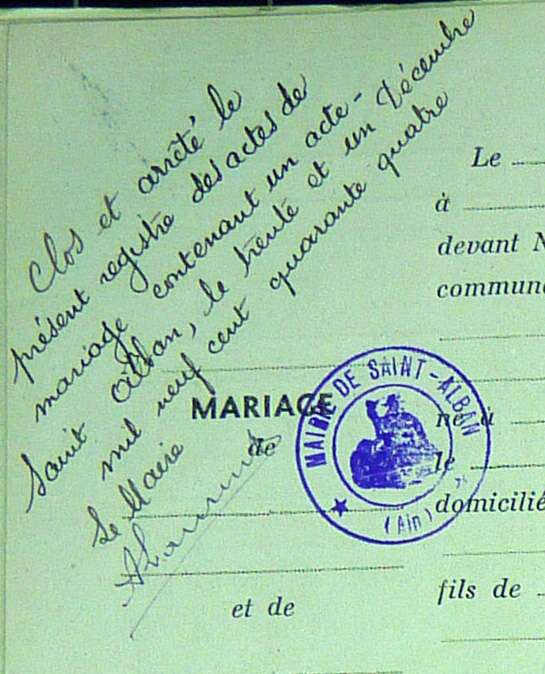 Clos et arrêté le
présent registre des actes de
mariage contenant un acte -
Saint Alban, le trente et un Décembre
mil neuf cent quarante quatre
Le Maire
MARIAGE
de
et de
MAIRIE DE SAINT-ALBAN
(Ain)
Le
à
devant N
commun
né à
le
domicilié
fils de